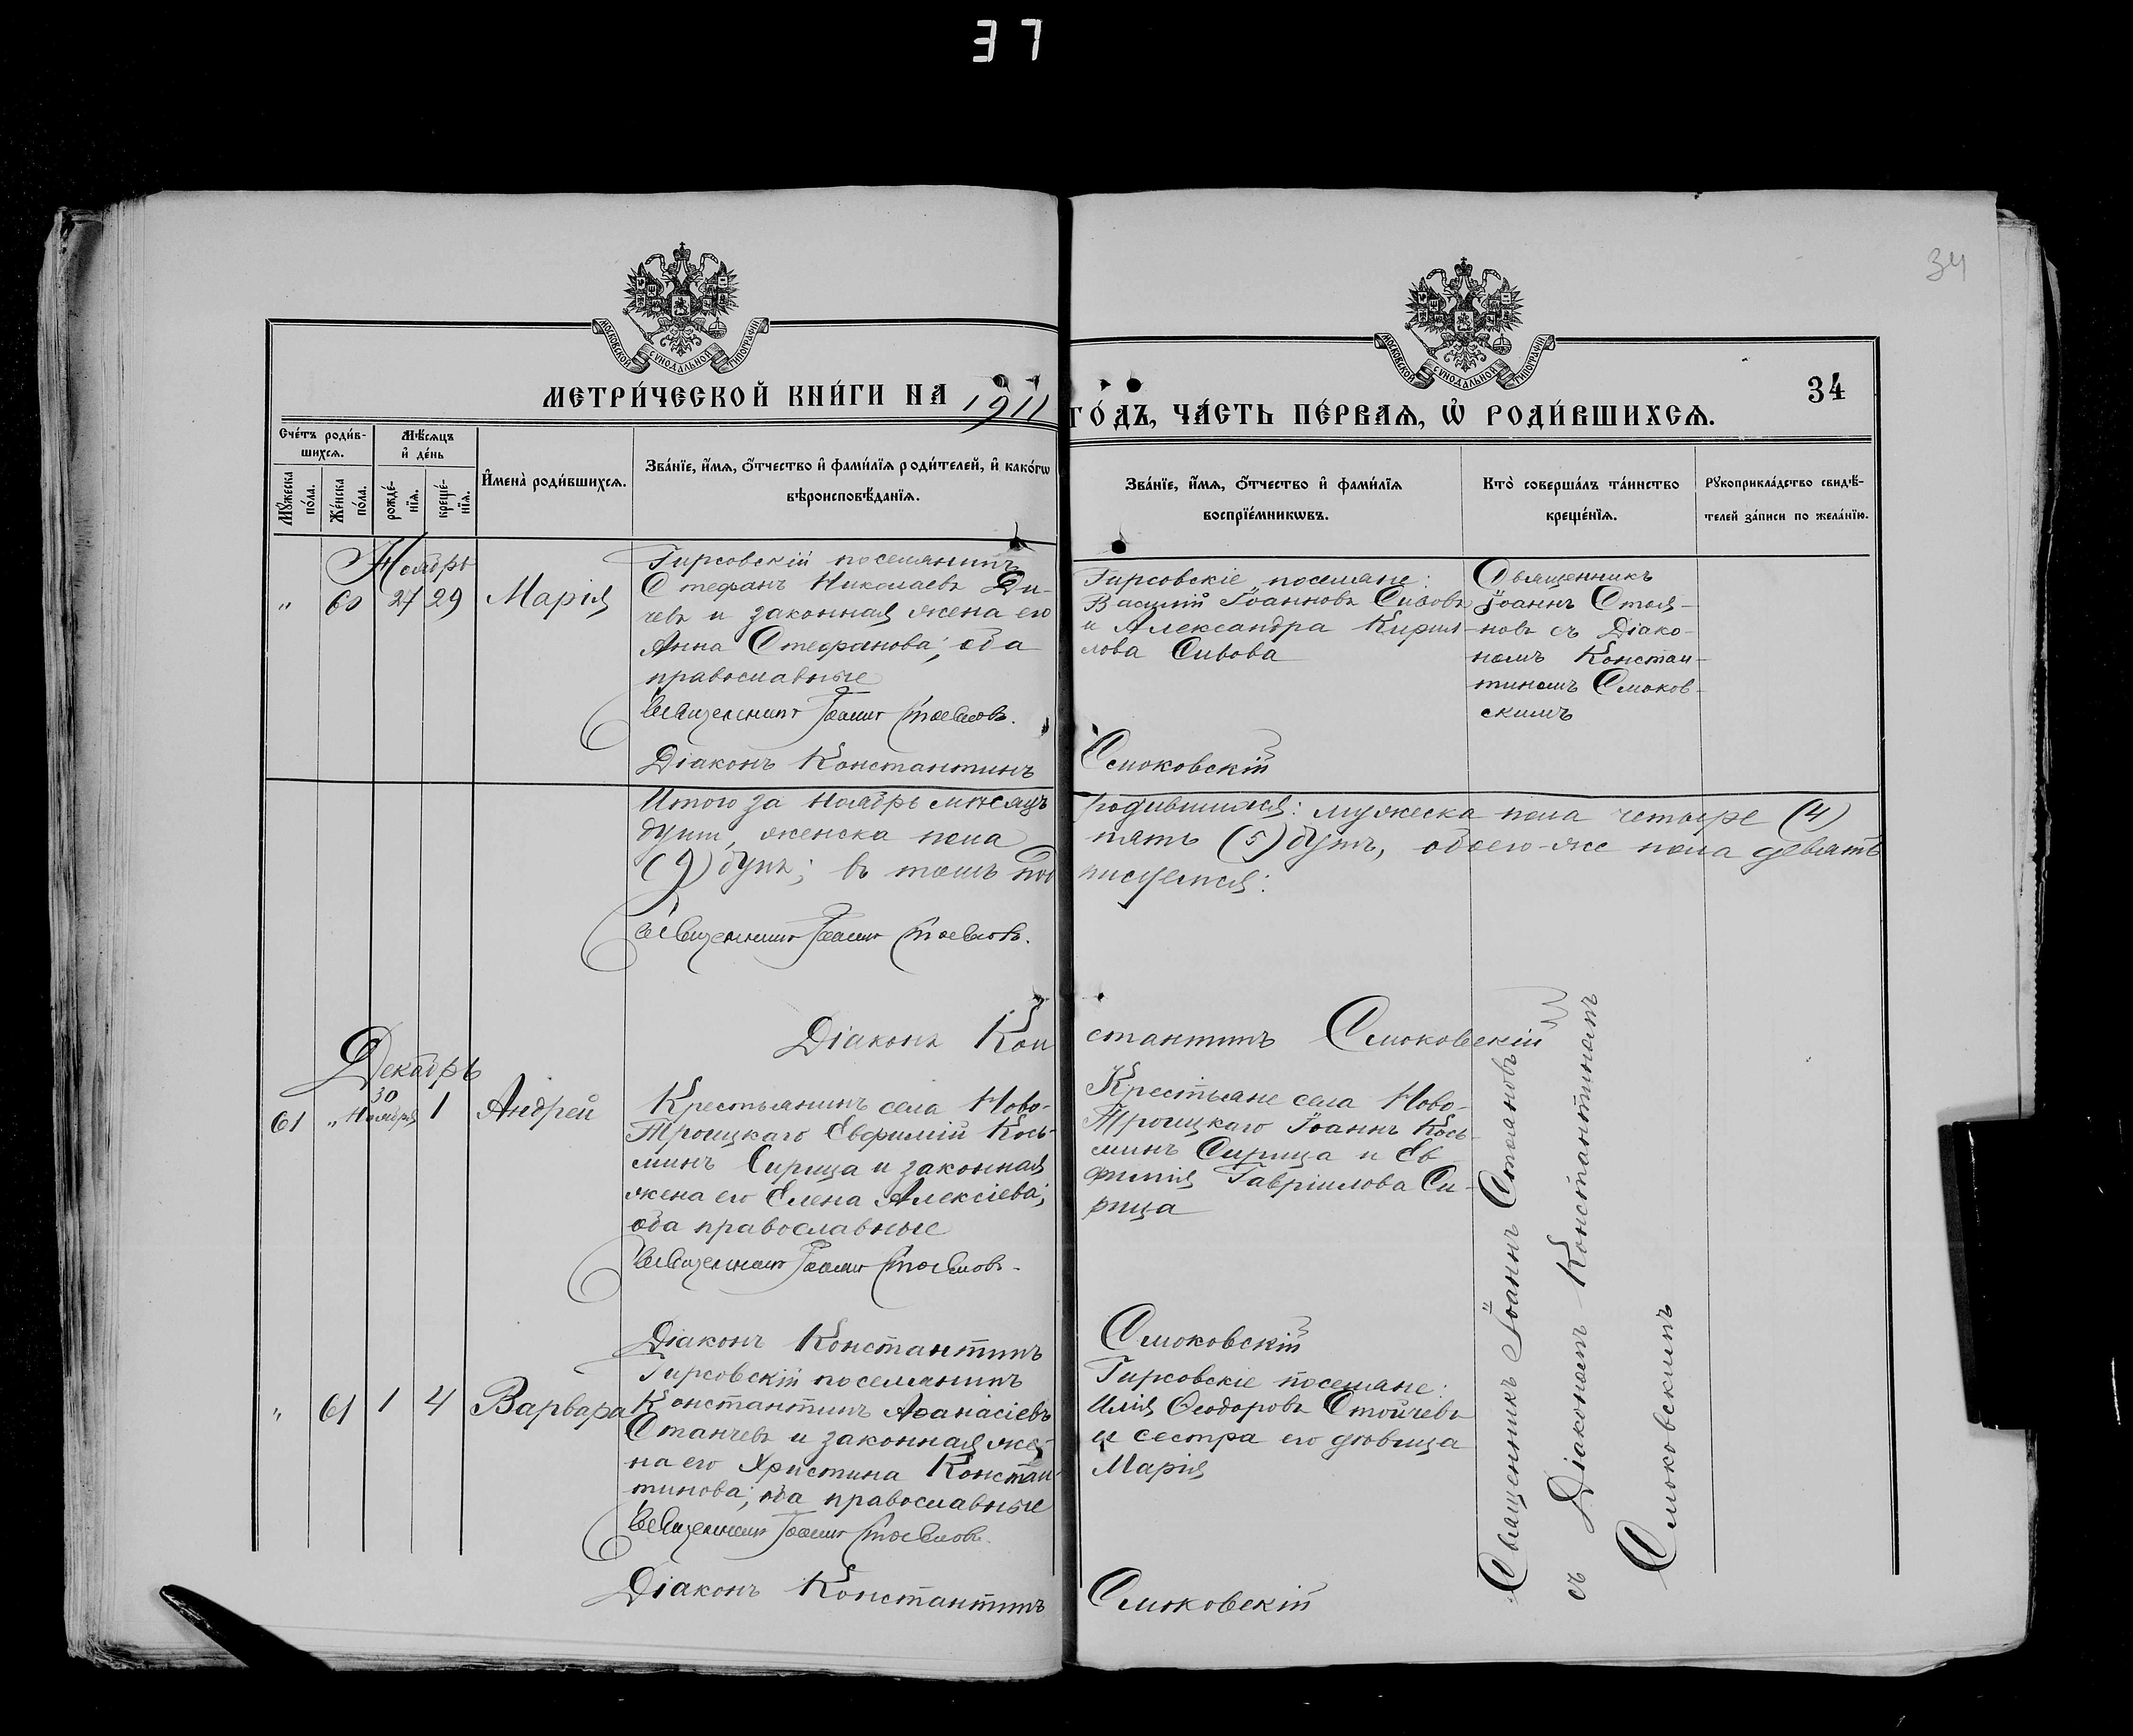 37
34
МОСКОВСКОЙ СУНОДАЛЬНОЙ ТИПОГРАФІИ
МОСКОВСКОЙ СУНОДАЛЬНОЙ ТИПОГРАФІИ
МЕТРИ́ЧЕСКОЙ КНИ́ГИ НА 1911
ГО́ДЪ, ЧА́СТЬ ПЕ́РВАѦ, Ѡ҆ РОДИ́ВШИХСѦ.
34
Сче́тъ роди́в-
шихсѧ.
Мѣ́сѧцъ
и҆ де́нь
Мꙋ́жеска
по́ла.
Же́нска
по́ла.
рожде́-
нїѧ.
креще́-
нїѧ.
И҆мена̀ роди́вшихсѧ.
Зва́нїе, и҆́мѧ, ѻ҆́тчество и҆ фами́лїѧ роди́телей, и҆ како́гѡ
вѣроисповѣ́данїѧ.
Зва́нїе, и҆́мѧ, ѻ҆́тчество и҆ фами́лїѧ
воспрїе́мникѡвъ.
Кто̀ соверша́лъ та́инство
креще́нїѧ.
Рꙋкоприкла́дство свидѣ́-
телей за́писи по жела́нїю.
Ноябрь
" 60 27 29 Марія
Гирсовскій поселянинъ
Стефанъ Николаевъ Ди-
чевъ и законная жена его
Анна Стефанова; оба
православные
Священникъ Іоаннъ Стояновъ.
Діаконъ Константинъ
Гирсовскіе поселяне:
Василій Іоанновъ Сивовъ
и Александра Кирил-
лова Сивова
Смоковскій
Священникъ
Іоаннъ Стоя-
новъ съ Діако-
номъ Констан-
тиномъ Смоков-
скимъ
Итого за Ноябрь мѣсяцъ
родившихся: мужеска пола четыре (4)
душъ, женска пола
пять (5) душъ, обоего-же пола девять
(9) душъ; въ томъ под
писуемся:
Священникъ Іоаннъ Стояновъ.
Діаконъ Кон
стантинъ Смоковскій
Декабрь
61 " 30 Ноября 1 Андрей
Крестьянинъ села Ново-
Троицкаго Евфимій Кось-
минъ Сирица и законная
жена его Елена Алексіева;
оба православные
Священникъ Іоаннъ Стояновъ.
Діаконъ Константинъ
Крестьяне села Ново-
Троицкаго Іоаннъ Кось-
минъ Сирица и Ев-
фимія Гавріилова Си-
рица
Смоковскій
" 61 1 4 Варвара
Гирсовскій поселянинъ
Константинъ Аѳанасіевъ
Станчевъ и законная же-
на его Христина Констан-
тинова; оба православные
Священникъ Іоаннъ Стояновъ.
Діаконъ Константинъ
Гирсовскіе поселяне:
Илія Ѳеодоровъ Стойчевъ
и сестра его дѣвица
Марія
Смоковскій
Священникъ Іоаннъ Стояновъ
съ Діакономъ Константиномъ
Смоковскимъ